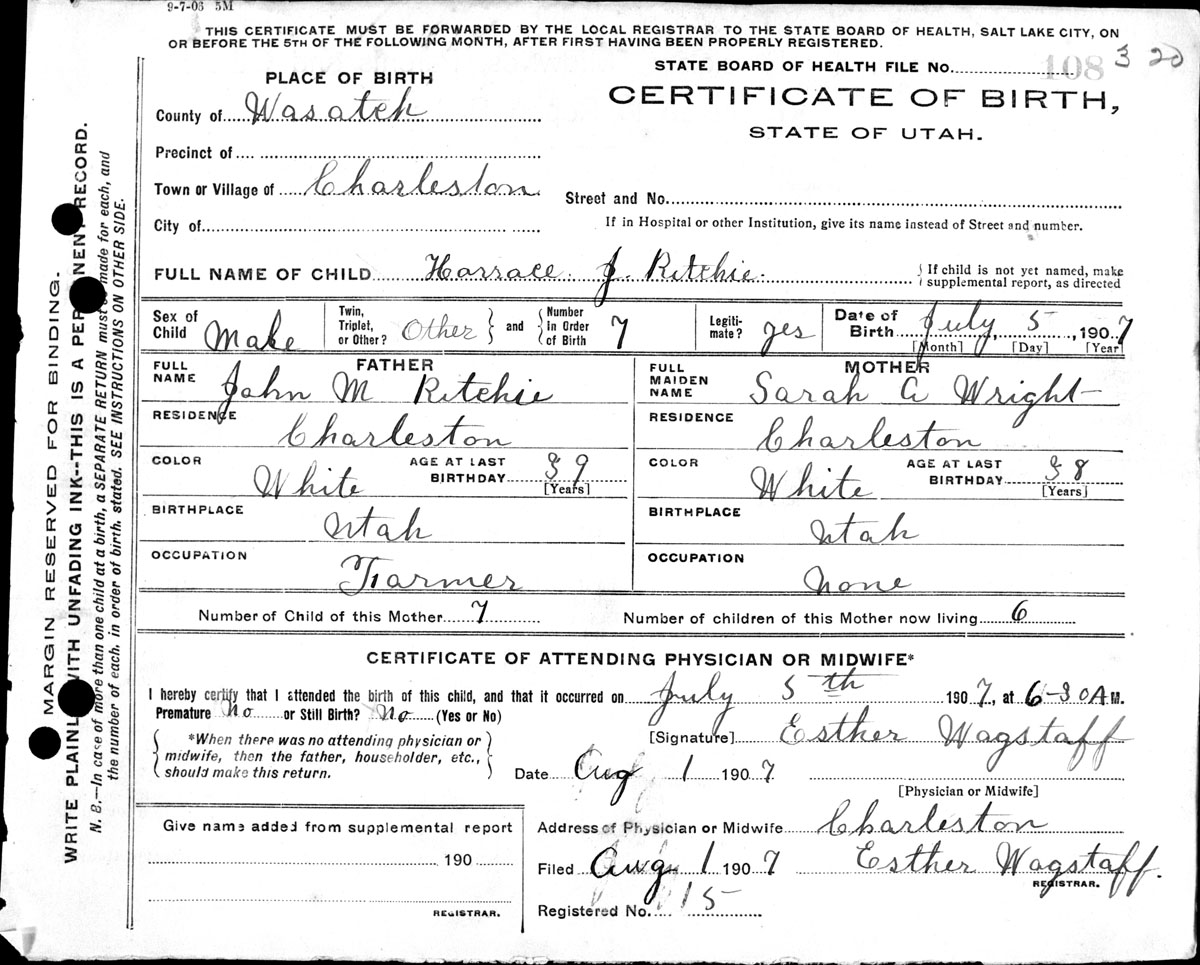 9-7-06 5M
THIS CERTIFICATE MUST BE FORWARDED BY THE LOCAL REGISTRAR TO THE STATE BOARD OF HEALTH, SALT LAKE CITY, ON
OR BEFORE THE 5TH OF THE FOLLOWING MONTH, AFTER FIRST HAVING BEEN PROPERLY REGISTERED.
STATE BOARD OF HEALTH FILE No. 108 3 20
PLACE OF BIRTH
CERTIFICATE OF BIRTH,
STATE OF UTAH.
County of Wasatch
Precinct of
Town or Village of Charleston
Street and No.
City of
If in Hospital or other Institution, give its name instead of Street and number.
FULL NAME OF CHILD Harrace J. Ritchie
If child is not yet named, make
supplemental report, as directed
Sex of Child Male
Twin, Triplet, or Other? Other and Number in Order of Birth 7
Legitimate? yes
Date of Birth July 5, 1907
[Month] [Day] [Year]
FATHER
FULL NAME John M Ritchie
RESIDENCE Charleston
COLOR White AGE AT LAST BIRTHDAY 39
[Years]
BIRTHPLACE Utah
OCCUPATION Farmer
MOTHER
FULL MAIDEN NAME Sarah A Wright
RESIDENCE Charleston
COLOR White AGE AT LAST BIRTHDAY 38
[Years]
BIRTHPLACE Utah
OCCUPATION None
Number of Child of this Mother 7 Number of children of this Mother now living 6
CERTIFICATE OF ATTENDING PHYSICIAN OR MIDWIFE*
I hereby certify that I attended the birth of this child, and that it occurred on July 5th 1907, at 6-30 A M.
Premature No or Still Birth? No (Yes or No)
*When there was no attending physician or
midwife, then the father, householder, etc.,
should make this return.
[Signature] Esther Wagstaff
Date Aug 1 1907
[Physician or Midwife]
Give name added from supplemental report
190
REGISTRAR.
Address of Physician or Midwife Charleston
Filed Aug 1 1907 Esther Wagstaff.
REGISTRAR.
Registered No. 15
MARGIN RESERVED FOR BINDING.
WRITE PLAINLY WITH UNFADING INK--THIS IS A PERMANENT RECORD.
N. B.—In case of more than one child at a birth, a SEPARATE RETURN must be made for each, and
the number of each, in order of birth, stated. SEE INSTRUCTIONS ON OTHER SIDE.